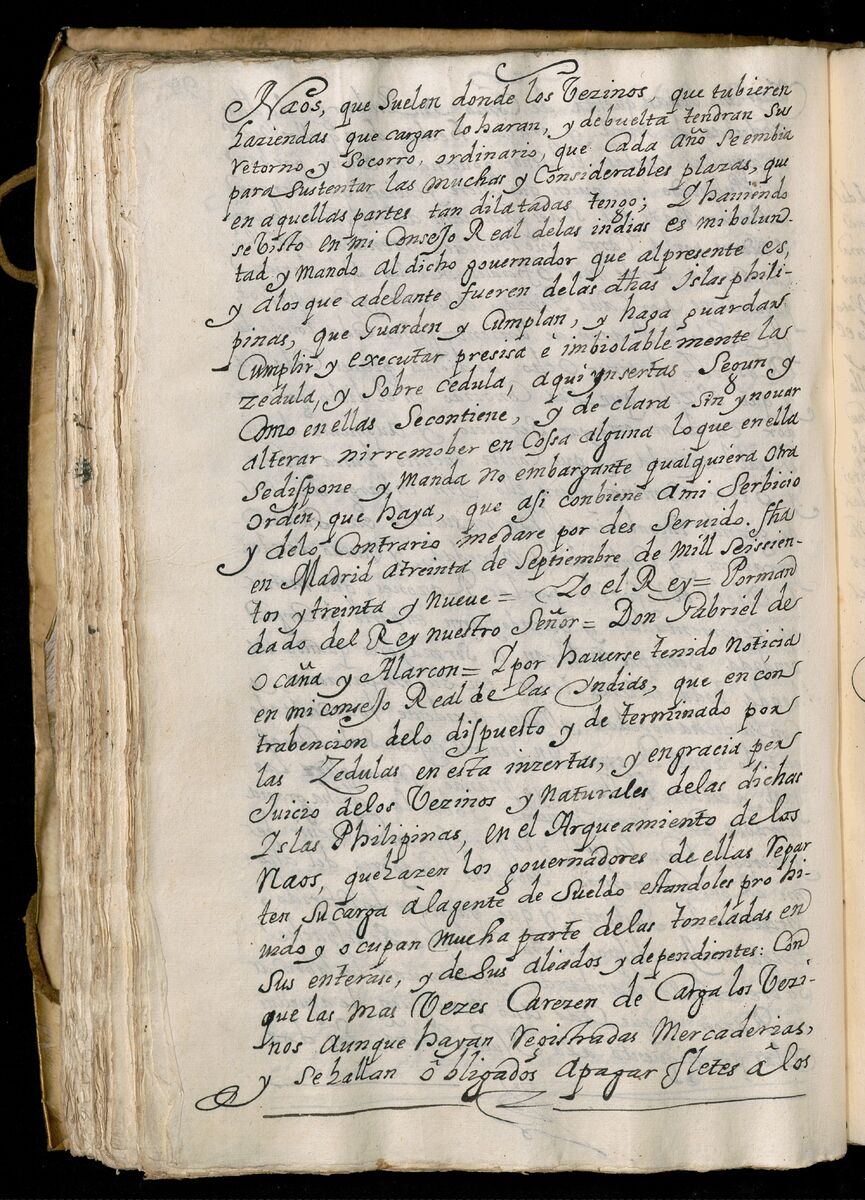 Naos, que suelen donde los Vezinos, que tubieren
haziendas que cargar lo haran, y debuelta tendran sus
retorno y Socorro, ordinario, que Cada año Se embia
para sustentar las muchas y Considerables plazas, que
en aquellas partes tan dilatadas tengo; Y haviendo
se Visto en mi Consejo Real delas indias es mi bolun-
tad y Mando Al dicho governador que alpresente es,
y alos que adelante fueren delas dhas Islas phili-
pinas, que Guarden y Cumplan, y haga guardar
Cumplir y executar presisa è imbiolablemente las
zedula, y Sobre cedula, aqui ynsertas Segun y
Como en ellas Secontiene, y de clara Sin ynovar
alterar nirremober en Cossa alguna lo que en ella
Sedispone y Manda No embargante qualquiera otra
orden, que haya, que asi conbiene Ami Serbicio
y delo Contrario medare por des Servido. ffha
en Madrid Atreinta de Septiembre de Mill Seiscien-
tos y treinta y Nueve = Yo el Rey = Porman
dado del Rey nuestro Señor = Don Gabriel de
Ocaña y Alarcon = Y por haverse tenido Noticia
en mi consejo Real de las Yndias, que en con
trabencion delo dispuesto y de terminado por
las Zedulas en esta inzertas, y engracia per
Juicio delos Vezinos y naturales delas dichas
Yslas Philipinas, en el Arqueamiento de las
Naos, que hazen los governadores de ellas repar
ten Sucarga àlagente de Sueldo estandoles pro hi-
vido y ocupan mucha parte delas toneladas en
Sus enterase, y de Sus aliados y dependientes: Con
que las mas Vezes Carezen de Carga los Vezi-
nos Aunque hayan registradas Mercaderias,
y Se hallan òbligados apagar fletes à los